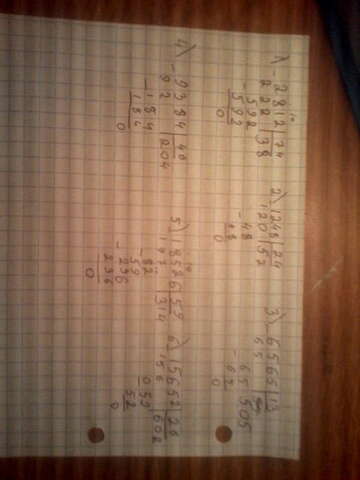 1) - 2812 | 74
222 | 38
- 592
592
0
2) 1248 | 24
120 | 52
- 48
48
0
3) 6565 | 13
65 | 505
- 65
65
0
4) - 9384 | 46
92 | 204
- 184
184
0
5) 18526 | 59
177 | 314
- 82
59
- 236
236
0
6) 15652 | 26
156 | 602
052
52
0